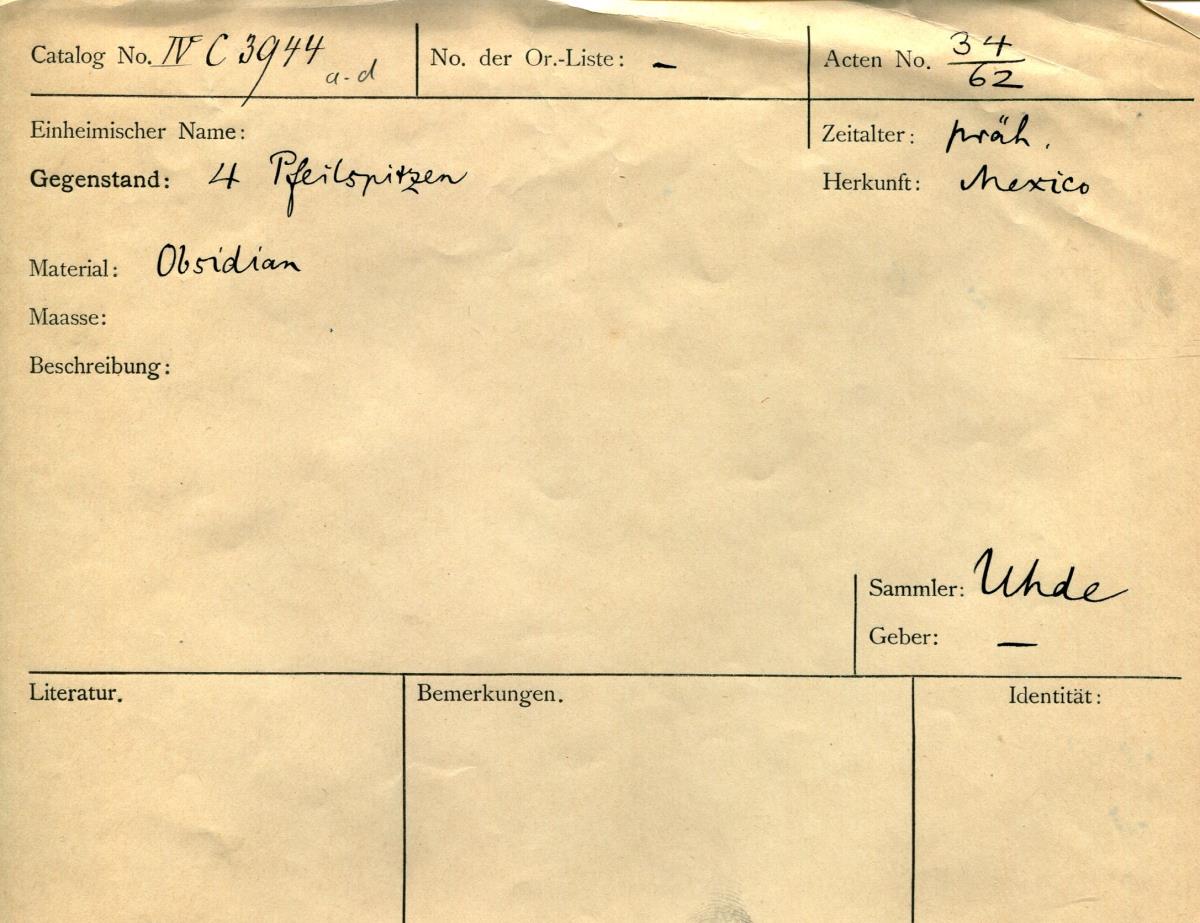 Catalog No. IV C 3944 a-d No. der Or.-Liste: – Acten No. 34/62
Einheimischer Name: Zeitalter: präh.
Gegenstand: 4 Pfeilspitzen Herkunft: Mexico
Material: Obsidian
Maasse:
Beschreibung:
Sammler: Uhde
Geber: –
Literatur. Bemerkungen. Identität: